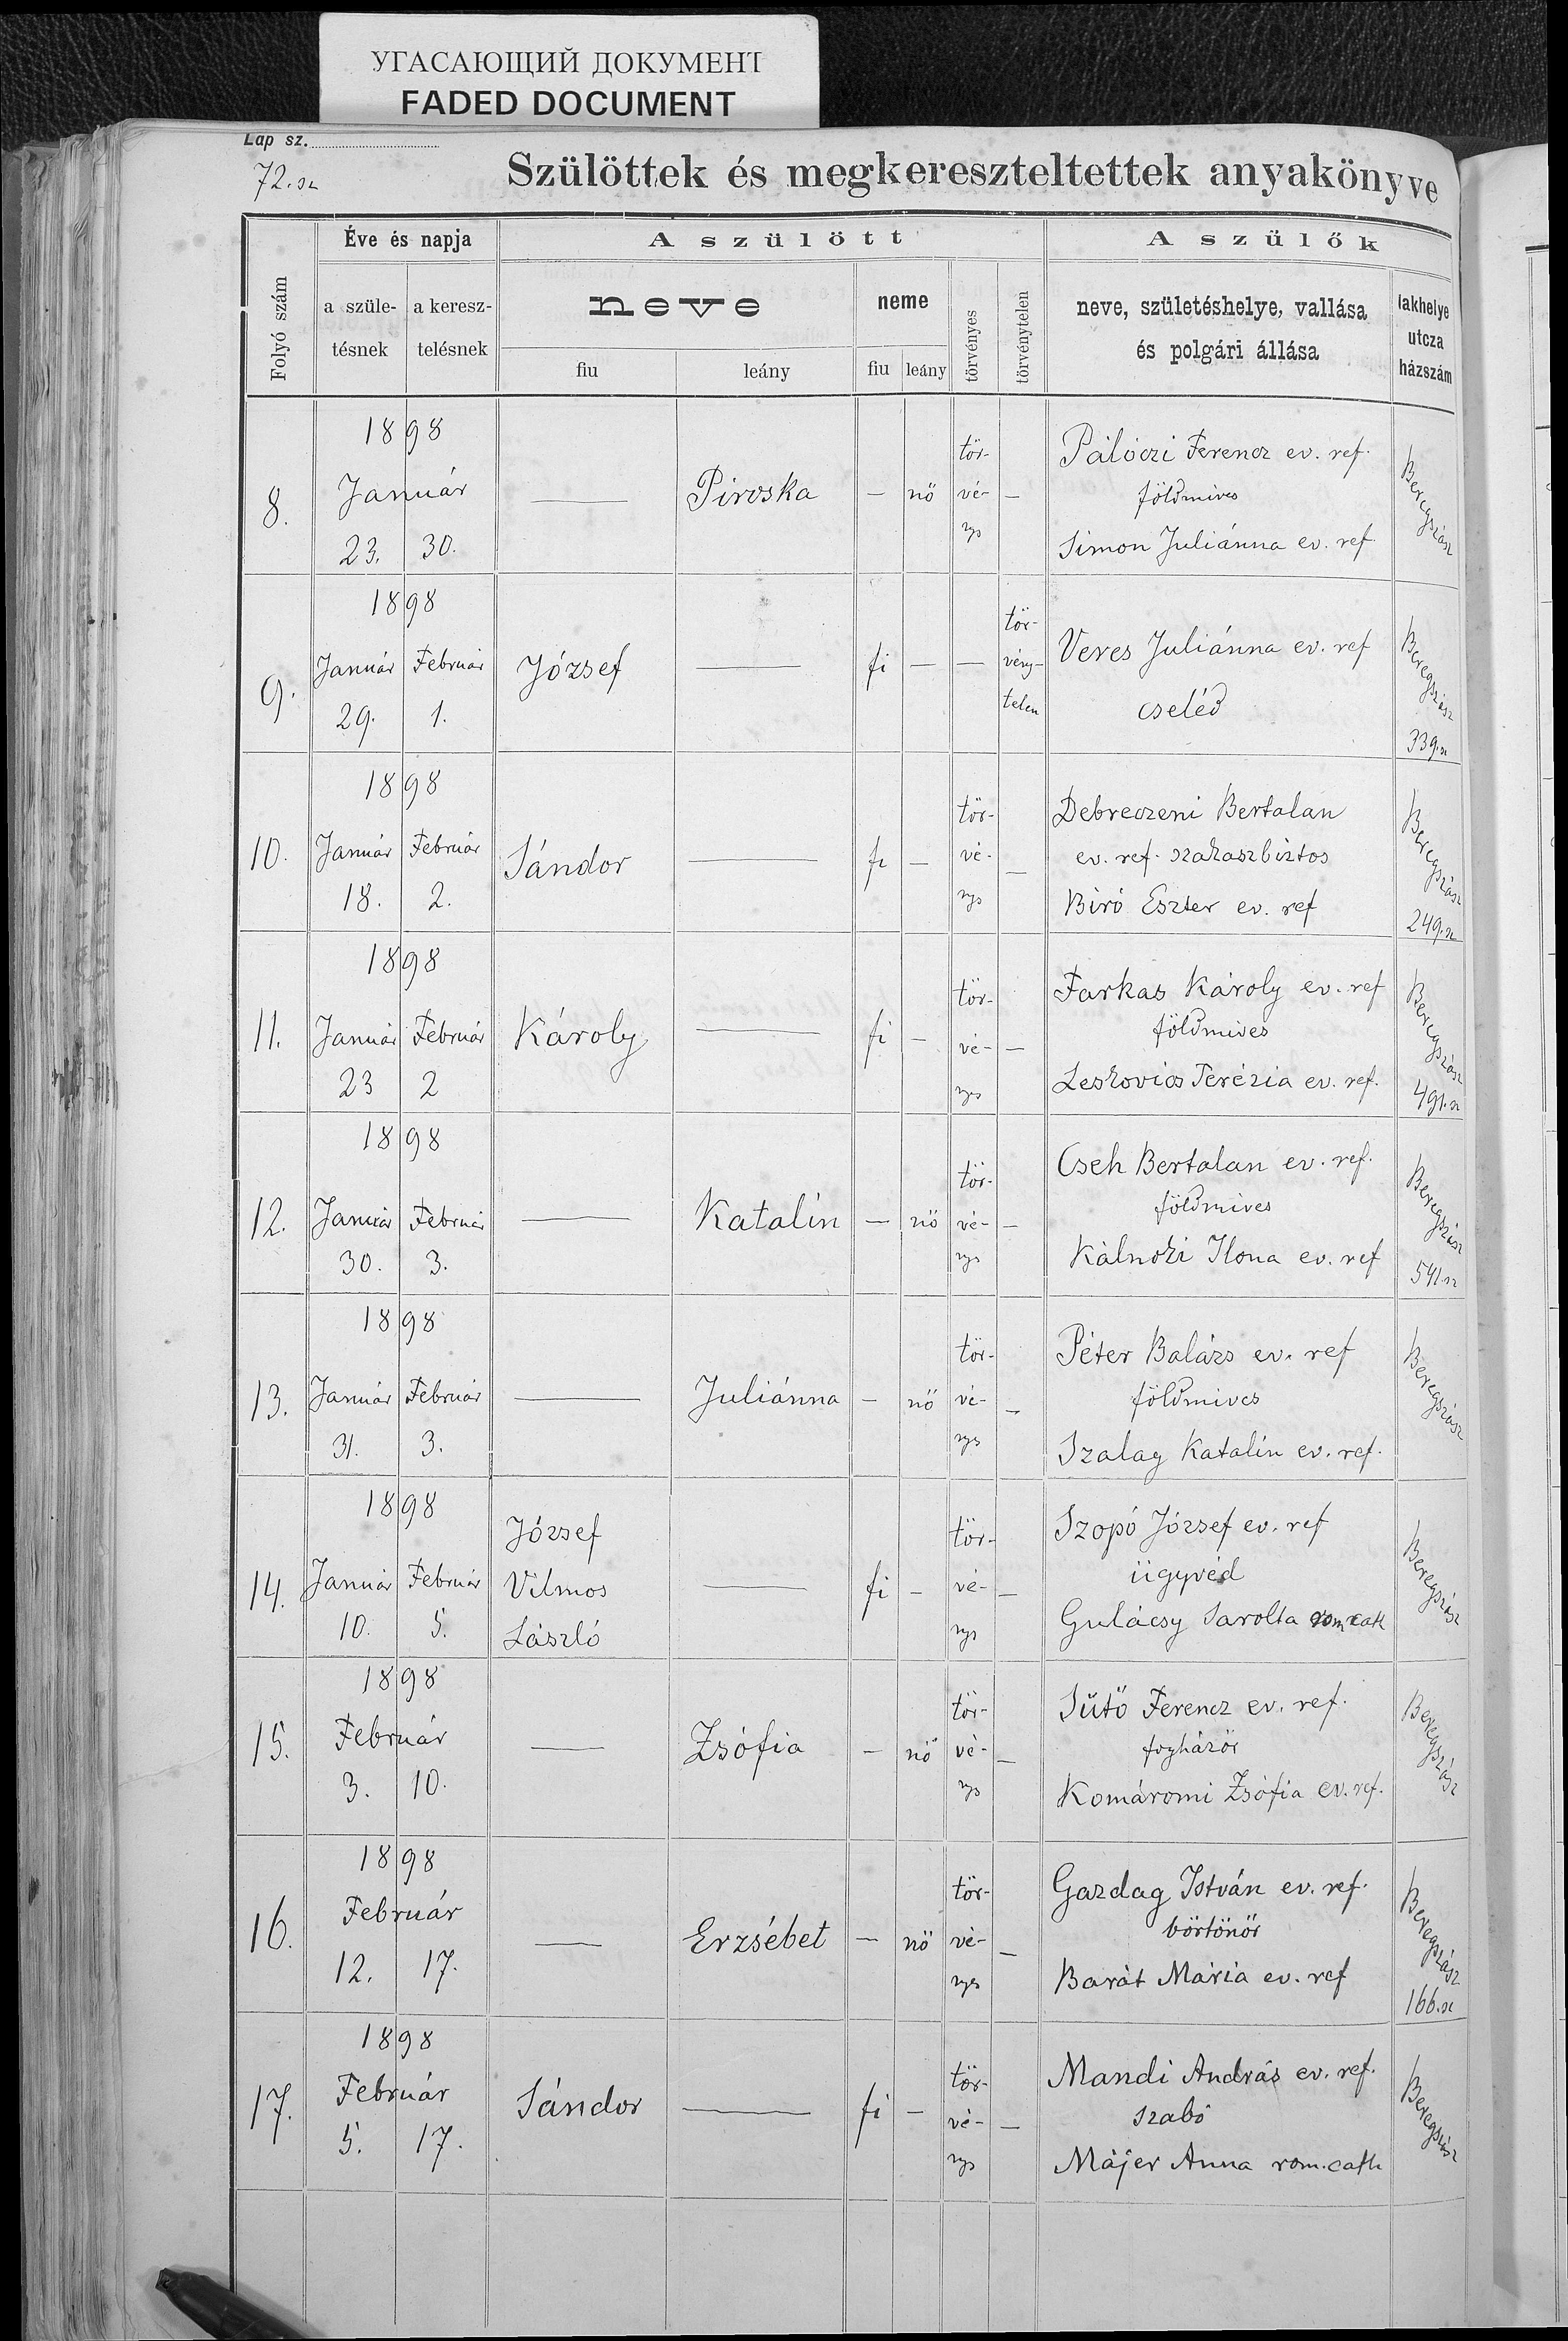 УГАСАЮЩИЙ ДОКУМЕНТ
FADED DOCUMENT
Lap sz.
72. sz
Szülöttek és megkereszteltettek anyakönyve
Folyó szám
Éve és napja
a szüle-
tésnek
a keresz-
telésnek
A szülött
neve
fiu
leány
neme
fiu
leány
törvényes
törvénytelen
A szülők
neve, születéshelye, vallása
és polgári állása
lakhelye
utcza
házszám
8.
1898
Január
23. 30.
—
Piroska
—
nö
tör-
vé-
nys
—
Pálóczi Ferencz ev. ref.
földmives
Simon Juliánna ev. ref.
Beregszász
9.
1898
Január Február
29. 1.
József
—
fi
—
—
tör-
vény-
telen
Veres Juliánna ev. ref
cseléd
Beregszász
339. sz
10.
1898
Január Február
18. 2.
Sándor
—
fi
—
tör-
vé-
nys
—
Debreczeni Bertalan
ev. ref. szakaszbiztos
Biró Eszter ev. ref
Beregszász
249. sz
11.
1898
Január Február
23 2
Károly
—
fi
—
tör-
vé-
nys
—
Farkas Károly ev. ref
földmives
Leskovics Terézia ev. ref.
Beregszász
491. sz
12.
1898
Január Február
30. 3.
—
Katalin
—
nö
tör-
vé-
nys
—
Cseh Bertalan ev. ref.
földmives
Kálnoki Ilona ev. ref
Beregszász
541. sz
13.
1898
Január Február
31. 3.
—
Juliánna
—
nö
tör-
vé-
nys
—
Péter Balázs ev. ref
földmives
Szalag Katalin ev. ref.
Beregszász
14.
1898
Január Február
10. 5.
József
Vilmos
László
—
fi
—
tör-
vé-
nys
—
Szopó József ev. ref
ügyvéd
Gulácsy Sarolta rom cath
Beregszász
15.
1898
Február
3. 10.
—
Zsófia
—
nö
tör-
vé-
nys
—
Sütő Ferencz ev. ref.
fogházőr
Komáromi Zsófia ev. ref.
Beregszász
16.
1898
Február
12. 17.
—
Erzsébet
—
nö
tör-
vé-
nyes
—
Gazdag István ev. ref.
börtönőr
Barát Mária ev. ref
Beregszász
166. sz
17.
1898
Február
5. 17.
Sándor
—
fi
—
tör-
vé-
nys
—
Mandi András ev. ref.
szabó
Májer Anna rom. cath
Beregszász